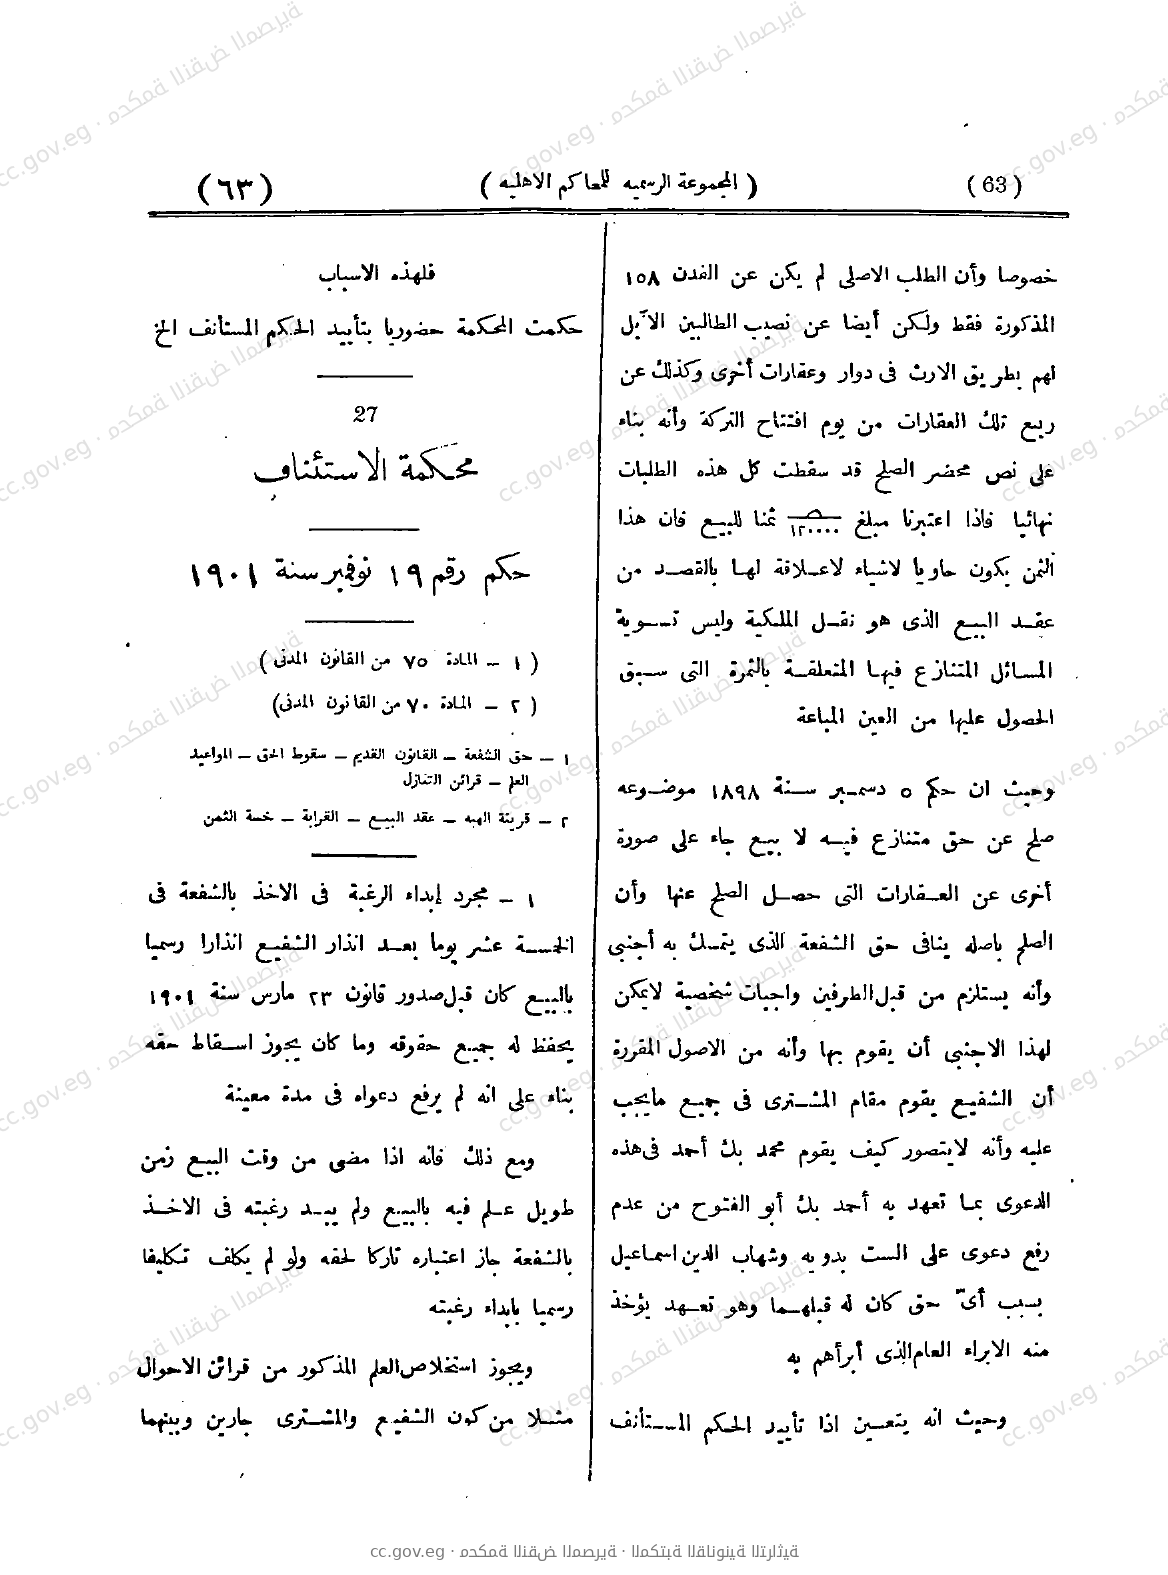 (63) (المجموعة الرسميه للمحاكم الاهليه) (٦٣)
خصوصا وأن الطلب الاصلى لم يكن عن الفدن ١٥٨
المذكورة فقط ولكن أيضا عن نصيب الطالبين الآيل
لهم بطريق الارث فى دوار وعقارات أخرى وكذلك عن
ريع تلك العقارات من يوم افتتاح التركة وأنه بناء
على نص محضر الصلح قد سقطت كل هذه الطلبات
نهائيا فاذا اعتبرنا مبلغ ١٢٠٠٠٠ ثمنا للبيع فان هذا
الثمن يكون حاويا لاشياء لاعلاقة لها بالقصد من
عقد البيع الذى هو نقل الملكية وليس تسوية
المسائل المتنازع فيها المتعلقة بالثمرة التى سبق
الحصول عليها من العين المباعة
وحيث ان حكم ٥ دسمبر سنة ١٨٩٨ موضوعه
صلح عن حق متنازع فيه لا بيع جاء على صورة
أخرى عن العقارات التى حصل الصلح عنها وأن
الصلح باصله ينافى حق الشفعة الذى يتمسك به أجنبى
وأنه يستلزم من قبل الطرفين واجبات شخصية لايمكن
لهذا الاجنبى أن يقوم بها وأنه من الاصول المقررة
أن الشفيع يقوم مقام المشترى فى جميع مايجب
عليه وأنه لايتصور كيف يقوم محمد بك أحمد فى هذه
الدعوى بما تعهد به أحمد بك أبو الفتوح من عدم
رفع دعوى على الست بدويه وشهاب الدين اسماعيل
بسبب أىّ حق كان له قبلهما وهو تعهد يؤخذ
منه الابراء العام الذى أبرأهم به
وحيث انه يتعين اذا تأييد الحكم المستأنف
فلهذه الاسباب
حكمت المحكمة حضوريا بتأييد الحكم المستأنف الخ
27
محكمة الاستئناف
حكم رقم ١٩ نوفمبر سنة ١٩٠١
(١ – المادة ٧٥ من القانون المدنى)
(٢ – المادة ٧٠ من القانون المدنى)
١ – حق الشفعة – القانون القديم – سقوط الحق – المواعيد
العلم – قرائن التنازل
٢ – قرينة الهبه – عقد البيع – القرابة – خسة الثمن
١ – مجرد إبداء الرغبة فى الاخذ بالشفعة فى
الخمسة عشر يوما بعد انذار الشفيع انذارا رسميا
بالبيع كان قبل صدور قانون ٢٣ مارس سنة ١٩٠١
يحفظ له جميع حقوقه وما كان يجوز اسقاط حقه
بناء على انه لم يرفع دعواه فى مدة معينة
ومع ذلك فانه اذا مضى من وقت البيع زمن
طويل علم فيه بالبيع ولم يبد رغبته فى الاخذ
بالشفعة جاز اعتباره تاركا لحقه ولو لم يكلف تكليفا
رسميا بابداء رغبته
ويجوز استخلاص العلم المذكور من قرائن الاحوال
مثلا من كون الشفيع والمشترى جارين وبينهما
cc.gov.eg · محكمة النقض المصرية · المكتبة القانونية التراثية